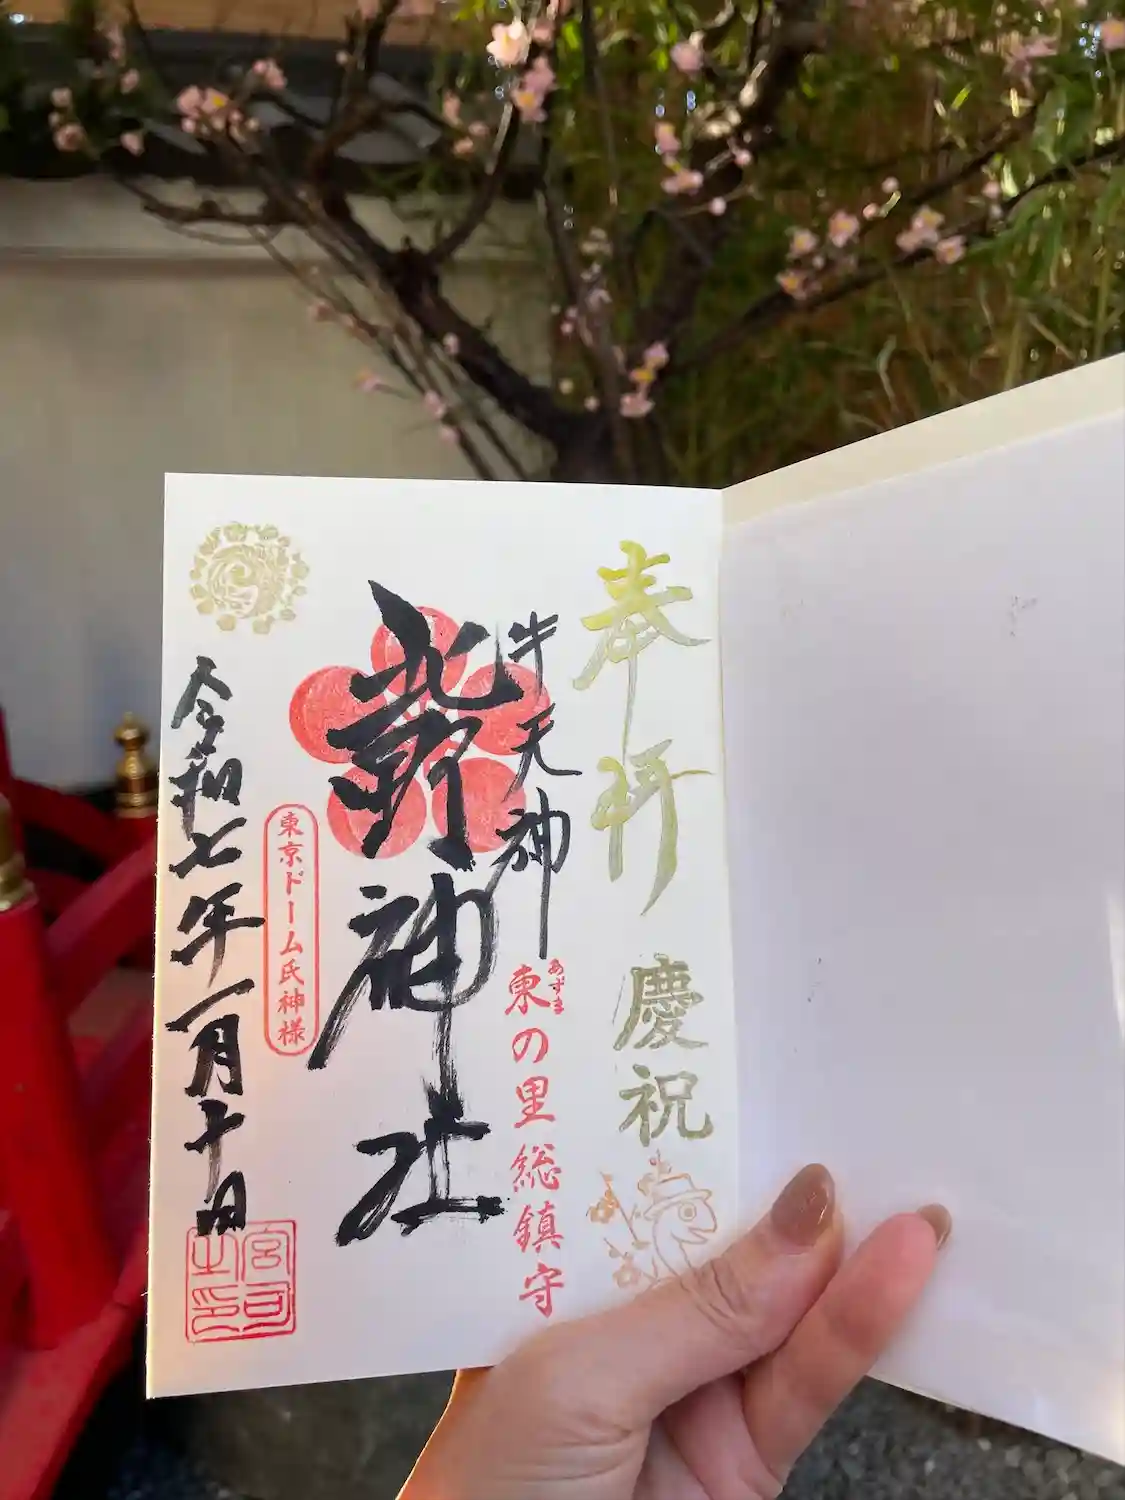 奉拝
慶祝
牛天神
東の里総鎮守
あずま
北野神社
東京ドーム氏神様
令和七年一月十日
宮司之印